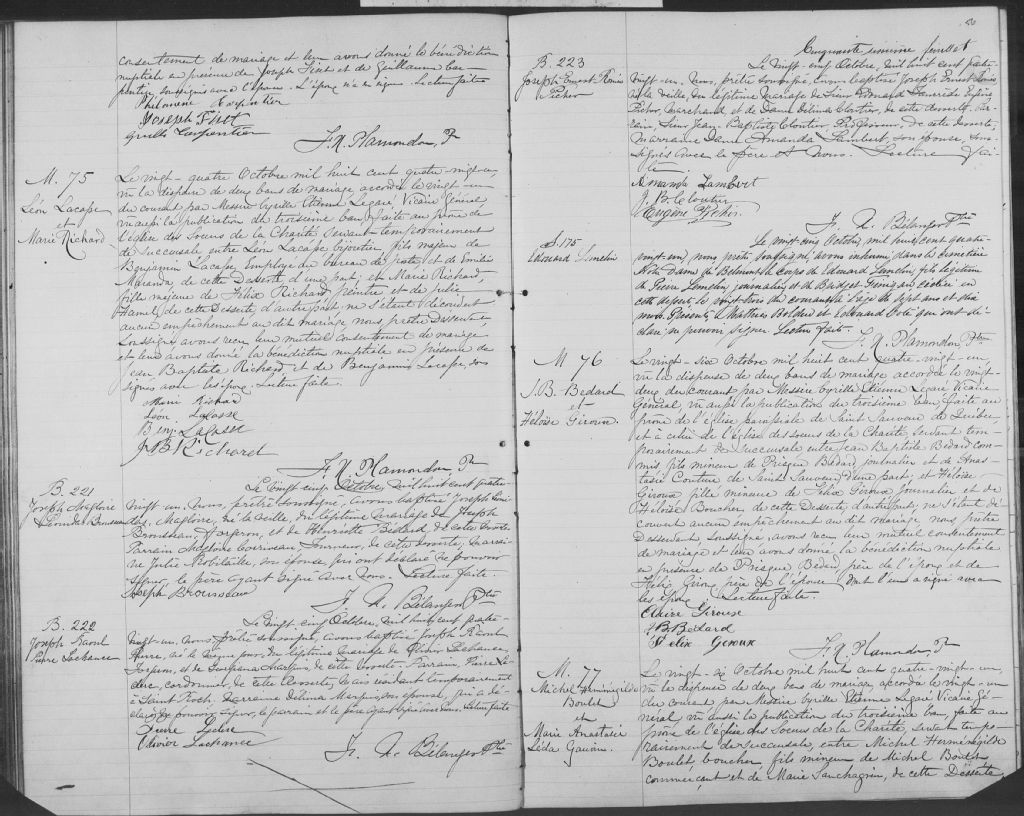 consentement de mariage et leur avons donné la bénédiction
nuptiale en présence de Joseph Fiset et de Guillaume Car
pentier soussignés avec l'épouse. L'époux n'a su signer. Lecture faite
Philomène Carpentier
Joseph Fiset
Guille Carpentier
F. X. Plamondon, Ptre
M. 75
Léon Lacasse
et
Marie Richard
Le vingt-quatre Octobre mil huit cent quatre-vingt-un,
vu la dispense de deux bans de mariage accordée le vingt-un
du courant par Messire Cyrille Etienne Légaré, Vicaire Général,
vu aussi la publication du troisième ban faite au prône de
l'église des Soeurs de la Charité servant temporairement
de succursale entre Léon Lacasse bijoutier, fils majeur de
Benjamin Lacasse, Employé du bureau de poste et de Emilie
Maranda, de cette Desserte, d'une part; et Marie Richard,
fille majeure de Félix Richard, peintre et de Julie
Hamel, de cette Desserte, d'autre part, ne s'étant découvert
aucun empêchement au dit mariage, nous prêtre Desservant,
soussigné, avons reçu leur mutuel consentement de mariage
et leur avons donné la bénédiction nuptiale en présence de
Jean Baptiste Richard et de Benjamin Lacasse, sous
signés avec les époux. Lecture faite.
Marie Richard
Léon Lacasse
Benj. Lacasse
J B Richard
F. X. Plamondon Ptre
B. 221
Joseph Magloire
Léonidas Brousseau
Le vingt-cinq Octobre, mil huit cent quatre-
vingt-un, Nous, prêtre soussigné, avons baptisé Joseph Léoni
das, Magloire, né la veille, du légitime mariage de Joseph
Brousseau, forgeron, et de Henriette Bédard, de cette desserte.
Parrain Magloire Corriveau, tourneur, de cette desserte, marrai-
ne Julie Robitaille, son épouse, qui ont déclaré ne pouvoir
signer, le père ayant signé avec Nous. Lecture faite.
Joseph Brousseau
F. X. Bélanger Ptre
B. 222
Joseph Raoul
Pierre Lachance
Le vingt-cinq Octobre, mil huit cent quatre-
vingt-un, Nous, prêtre soussigné, avons baptisé Joseph Raoul
Pierre, né le jour, du légitime mariage de Olivier Lachance,
forgeron, et de Marquis, de cette desserte. Parrain, Pierre Le-
clerc, cordonnier, de cette desserte, mais résidant temporairement
à Saint Roch. Marraine Délima Marquis, son épouse, qui a dé-
claré ne pouvoir signer, le parrain et le père ayant signé avec nous. Lecture faite
Pierre Leclerc
Olivier Lachance
F. X. Bélanger Ptre
Cinquante unième feuillet
B. 223
Joseph Ernest Louis
Pichon
Le vingt-cinq Octobre, mil huit cent quatre-
vingt-un, Nous, prêtre soussigné, avons baptisé Joseph Ernest Louis
né la veille, du légitime mariage de Sieur Edouard
Marchand, et de Dame Délina Cloutier, de cette desserte. Par-
rain, Sieur Jean-Baptiste Cloutier, Professeur, de cette desserte,
Marraine Dame Amanda Lambert, son épouse, sous-
signés avec le père et Nous. Lecture fai-
te
Amanda Lambert
J. B. Cloutier
F. X. Bélanger Ptre
S. 175
Edouard Lemelin
Le vingt-cinq Octobre, mil huit cent quatre-
vingt-un, nous prêtre soussigné, avons inhumé, dans le cimetière
Notre Dame de Belmont le corps de Edouard Lemelin, fils légitime
de Pierre Lemelin journalier et de Bridget décédé en
cette desserte, le vingt-trois du courant à l'âge de sept ans et dix
mois. Présents, Mathieu Bolduc et Edouard Coté qui ont dé-
claré ne pouvoir signer. Lecture faite.
F. X. Plamondon, Ptre
M 76
J. B. Bédard
et
Héloïse Giroux.
Le vingt-six Octobre mil huit cent quatre-vingt-un,
vu la dispense de deux bans de mariage accordée le vingt-
deux du courant par Messire Cyrille Etienne Légaré Vicaire
Général, vu aussi la publication du troisième ban faite au
prône de l'église paroissiale de Saint Sauveur de Québec,
et à celui de l'église des soeurs de la Charité servant tem-
porairement de succursale entre Jean Baptiste Bédard com-
mis, fils mineur de Prisque Bédard journalier et de Anas-
tasie Couture de Saint Sauveur d'une part, et Héloïse
Giroux fille mineure de Félix Giroux journalier et de
Héloïse Boucher, de cette Desserte, d'autre part, ne s'étant dé-
couvert aucun empêchement au dit mariage, nous prêtre
Desservant, soussigné, avons reçu leur mutuel consentement
de mariage et leur avons donné la bénédiction nuptiale
en présence de Prisque Bédard, père de l'époux et de
Félix Giroux, père de l'épouse dont l'un a signé avec
les époux. Lecture faite.
Claire Giroux
J B Bédard
Félix Giroux
F. X. Plamondon, Ptre
M. 77
Michel Herménégilde
Boulet
et
Marie Anastasie
Léda Gauvin.
Le vingt-six Octobre mil huit cent quatre-vingt-un,
vu la dispense de deux bans de mariage, accordée le vingt-un
du courant, par Messire Cyrille Etienne Légaré Vicaire Gé-
néral, vu aussi la publication du troisième ban, faite au
prône de l'église des Soeurs de la Charité, servant tempo-
rairement de succursale, entre Michel Herménégilde
Boulet, boucher, fils mineur de Michel Boulet
commerçant et de Marie Tanchagrin, de cette Desserte,